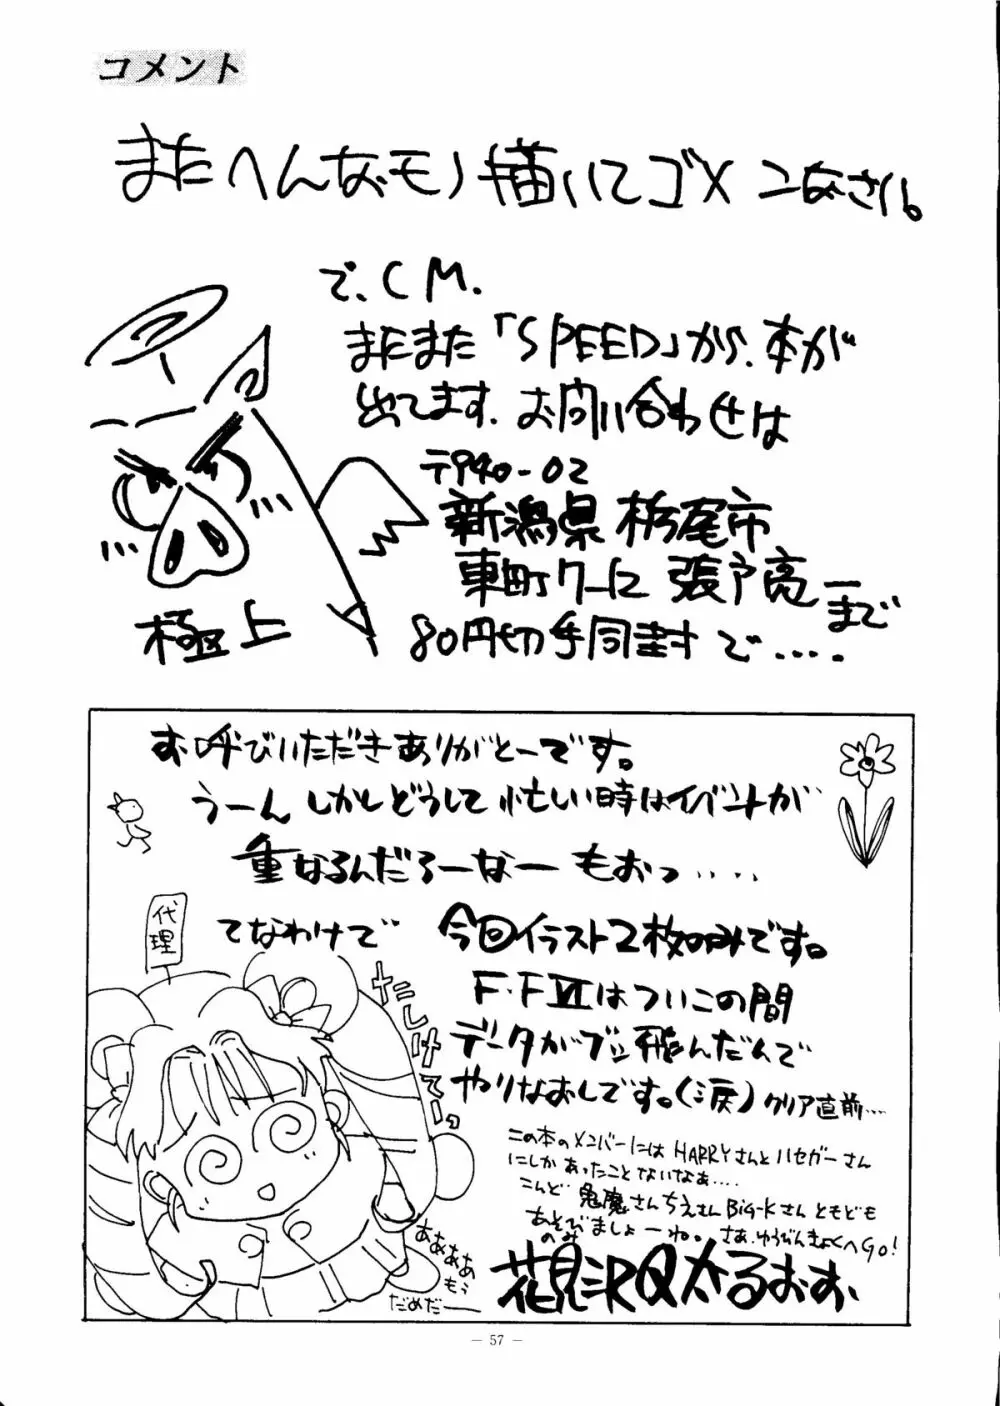 コメント
またへんなモノ描いてゴメンなさい。
で、CM.
またまた「SPEED」から、本が
出てます、お問い合わせは
〒940-02
新潟県栃尾市
東町7-12 張戸亮一まで
極上
80円切手同封で....
お呼びいただきありがとーです。
うーん しかしどうして忙しい時はイベントが
重なるんだろーなー もおっ....
代理
てなわけで 今回イラスト2枚のみです。
たしけてーっ
F.FⅥはついこの間
データがブッ飛んだんで
やりなおしです。(涙)クリア直前....
この本のメンバーにはHARRYさんとハセガーさん
にしかあったことないなぁ....
こんど 鬼魔さんちえさんBig-Kさんともども
あそびましょーね。 さあ、ゆうびんきょくへGo!
のみ
ああああ
もぅ
だめだー
花見沢Q太るおすか
— 57 —